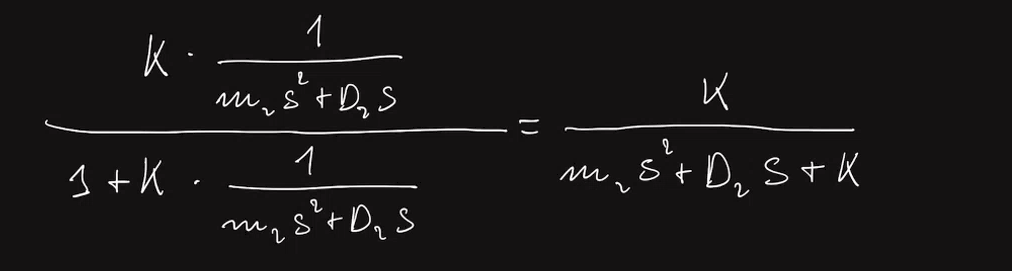 \frac{K \cdot \frac{1}{m_2 s^2 + D_2 s}}{1 + K \cdot \frac{1}{m_2 s^2 + D_2 s}} = \frac{K}{m_2 s^2 + D_2 s + K}